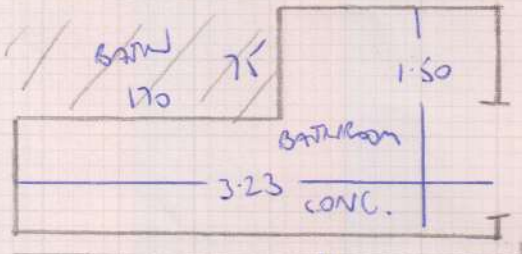 BATH
75
170
1.50
BATHROOM
3.23
CONC.